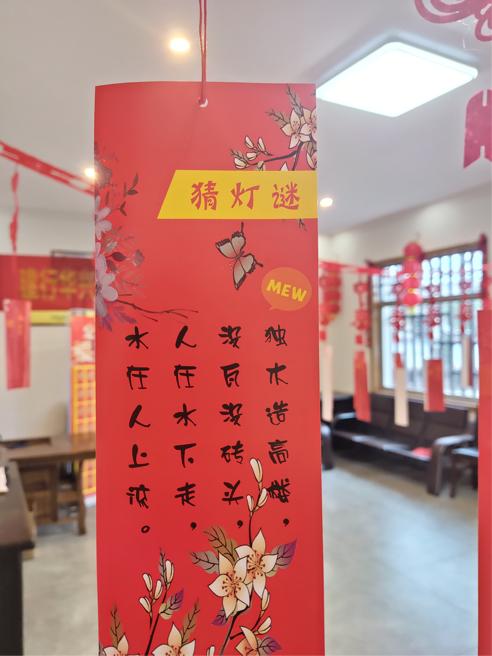 猜灯谜
MEW
独木造高楼，
没瓦没砖头，
人在水下走，
水在人上流。